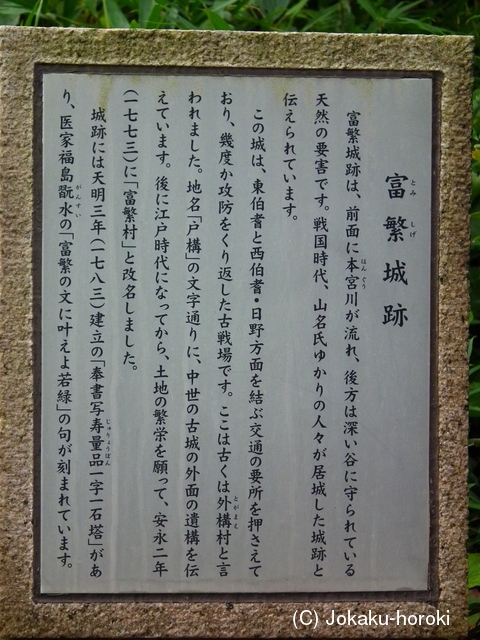 富繁城跡
とみ しげ
富繁城跡は、前面に本宮川が流れ、後方は深い谷に守られている
ほんぐう
天然の要害です。戦国時代、山名氏ゆかりの人々が居城した城跡と
伝えられています。
この城は、東伯耆と西伯耆・日野方面を結ぶ交通の要所を押さえて
おり、幾度か攻防をくり返した古戦場です。ここは古くは外構村と言
とがまん
われました。地名「戸構」の文字通りに、中世の古城の外面の遺構を伝
えています。後に江戸時代になってから、土地の繁栄を願って、安永二年
(一七七三)に「富繁村」と改名しました。
城跡には天明三年(一七八三)建立の「奉書写寿量品一字一石塔」があ
じゅりょうぼん
り、医家福島翫水の「富繁の文に叶えよ若緑」の句が刻まれています。
がんすい
(C) Jokaku-horoki